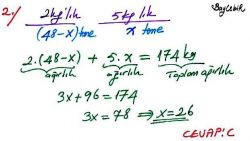 2.)
2kg'lık 5kg'lık
(48-x) tane x tane
2.(48-x) + 5.x = 174 kg
ağırlık ağırlık Toplam ağırlık
3x+96=174
3x=78 ⇒ x=26
CEVAP: C